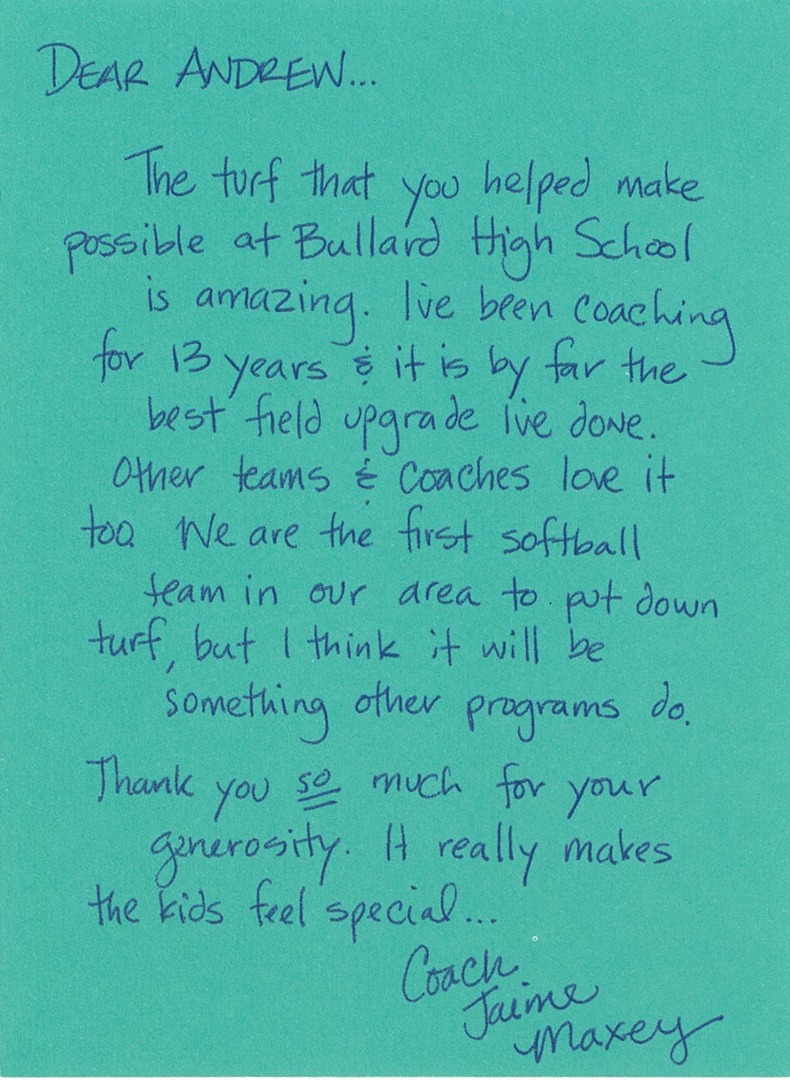 DEAR ANDREW...
The turf that you helped make
possible at Bullard High School
is amazing. I've been coaching
for 13 years & it is by far the
best field upgrade I've done.
Other teams & coaches love it
too. We are the first softball
team in our area to put down
turf, but I think it will be
something other programs do.
Thank you so much for your
generosity. It really makes
the kids feel special...
Coach
Jaime
Maxey